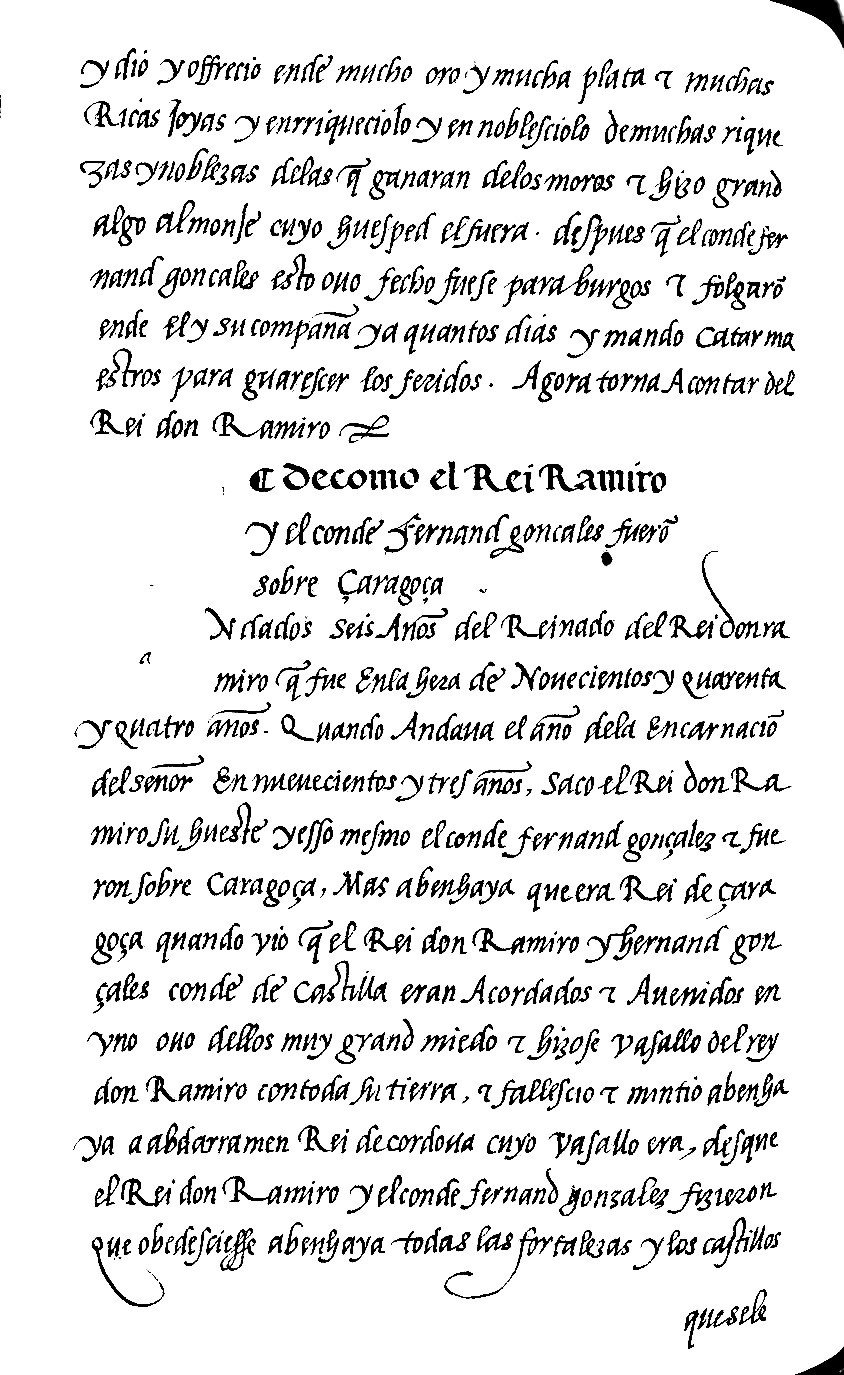 y dio y offrecio ende mucho oro y mucha plata ⁊ muchas
Ricas Joyas y enrriqueciolo y en noblesciolo de muchas rique
zas y noblezas delas q̃ ganaran delos moros ⁊ hizo grand
algo al monje cuyo huesped el fuera. despues q̃ el conde fer
nand goncales esto ouo fecho fuese para burgos ⁊ folgarõ
ende El y su compañã ya quantos dias y mando Catar ma
estros para guarescer los feridos. Agora torna Acontar del
Rei don Ramiro
¶ De como el Rei Ramiro
y el conde Fernand goncales fuerõ
sobre Çaragoça
a
Ndados seis Años del Reinado del Rei don ra
miro q̃ fue Enla hera de Nouecientos y quarenta
y quatro años. Quando Andaua el año dela Encarnaciõ
del señor En nueuecientos y tres años, Saco el Rei don Ra
miro su hueste y esso mesmo el conde fernand gonçalez ⁊ fue
ron sobre Caragoça, Mas abenhaya que era Rei de çara
goça quando vio q̃ el Rei don Ramiro y hernand gon
çales conde de Castilla eran Acordados ⁊ Auenidos en
vno ouo dellos muy grand miedo ⁊ hizose vasallo del rey
don Ramiro con toda su tierra, ⁊ fallescio ⁊ mintio abenha
ya a abdarramen Rei de cordoua cuyo vasallo era, desque
el Rei don Ramiro y el conde fernand gonzalez fizieron
que obedesciesse abenhaya todas las fortalezas y los castillos
que sele